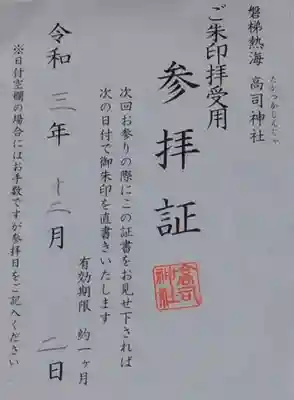 磐梯熱海 高司神社
たかつかじんじゃ
ご朱印拝受用
参拝証
次回お参りの際にこの証書をお見せ下されば
次の日付で御朱印を直書きいたします
有効期限 約一ヶ月
令和三年十二月二日
※日付空欄の場合にはお手数ですが参拝日をご記入ください
高司神社